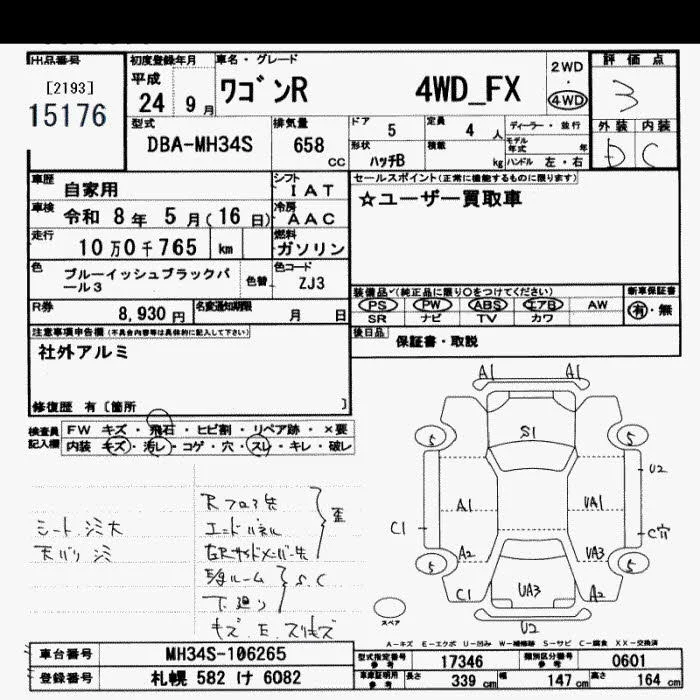 出品番号
[2193]
15176
初度登録年月
平成
24 9月
車名・グレード
ワゴンR 4WD_FX
2WD
・
4WD
評価点
3
外装 内装
D C
型式
DBA-MH34S
排気量
658
CC
ドア 5
定員 4 人
ディーラー・並行
形状 ハッチB
積載 kg
モデル年式 年
ハンドル 左・右
車歴
自家用
シフト
IAT
車検
令和 8年 5月(16日)
冷房
AAC
走行
10万0千765 km
燃料
ガソリン
色
ブルーイッシュブラックパール3
色替
色コード
ZJ3
R券
8,930円
名変通知期限
月 日
セールスポイント(正常に機能するものに限ります)
☆ユーザー買取車
装備品(純正品に限り○をつけてください)
PS PW ABS エアB AW
SR ナビ TV カワ
新車保証書
有・無
後日品
保証書・取説
注意事項申告欄(不具合内容等は具体的に記入して下さい)
社外アルミ
修復歴 有〔箇所 〕
検査員記入欄
FW キズ・飛石・ヒビ割・リペア跡・×要
内装 キズ・汚レ・コゲ・穴・スレ・キレ・破レ
シート シミ大
天バリ シミ
Rフロア先
エンドパネル
左Rサイドメンバー先
歪
下廻り
S.C
キズ E スリキズ
A1 A1
S1
5 5
A1
UA1
U2
C1
C穴
A2
UA3
5 5
C1
UA3
A2
U2
スペア
A-キズ E-エクボ U-凹み W-補修跡 S-サビ C-腐食 XX-交換済
車台番号
MH34S-106265
登録番号
札幌 582 け 6082
型式指定番号
参考
17346
類別区分番号
参考
0601
車庫証明用
参考
長さ 339 cm
幅 147 cm
高さ 164 cm